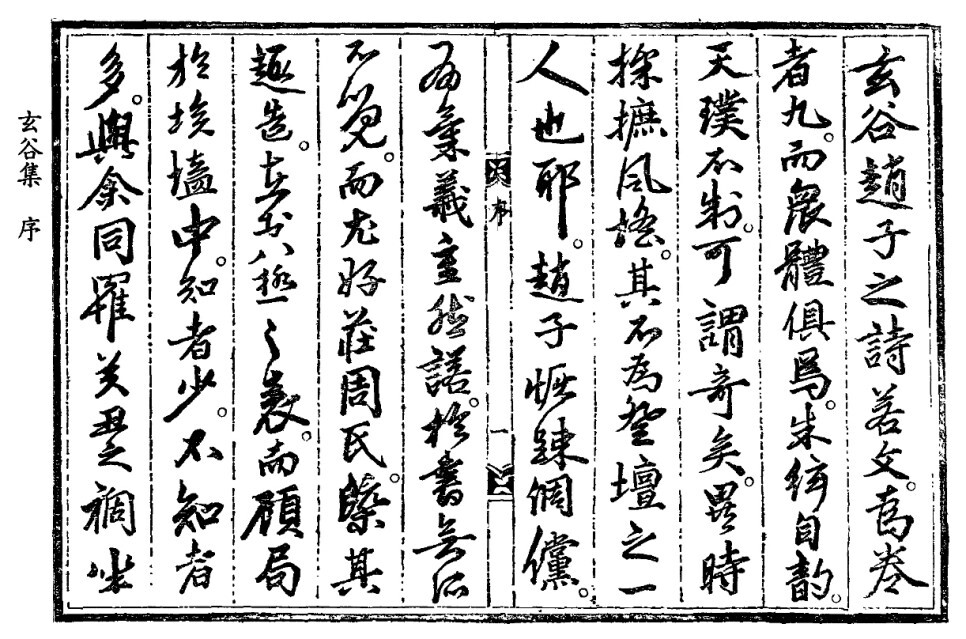 玄谷趙子之詩若文。爲卷
者九。而衆體俱焉。朱絃自韵。
天璞不斲。可謂奇矣。異時
採摭風謠。其不爲登壇之一
人也耶。趙子恢踈倜儻。
序
一
氣義重然諾。於書無所
不覽。而尤好莊周氏。槩其
趣造。直出八極之表。而顧局
於埃壒中。知者少。不知者
多。與余同罹癸丑之禍。坐
玄谷集 序